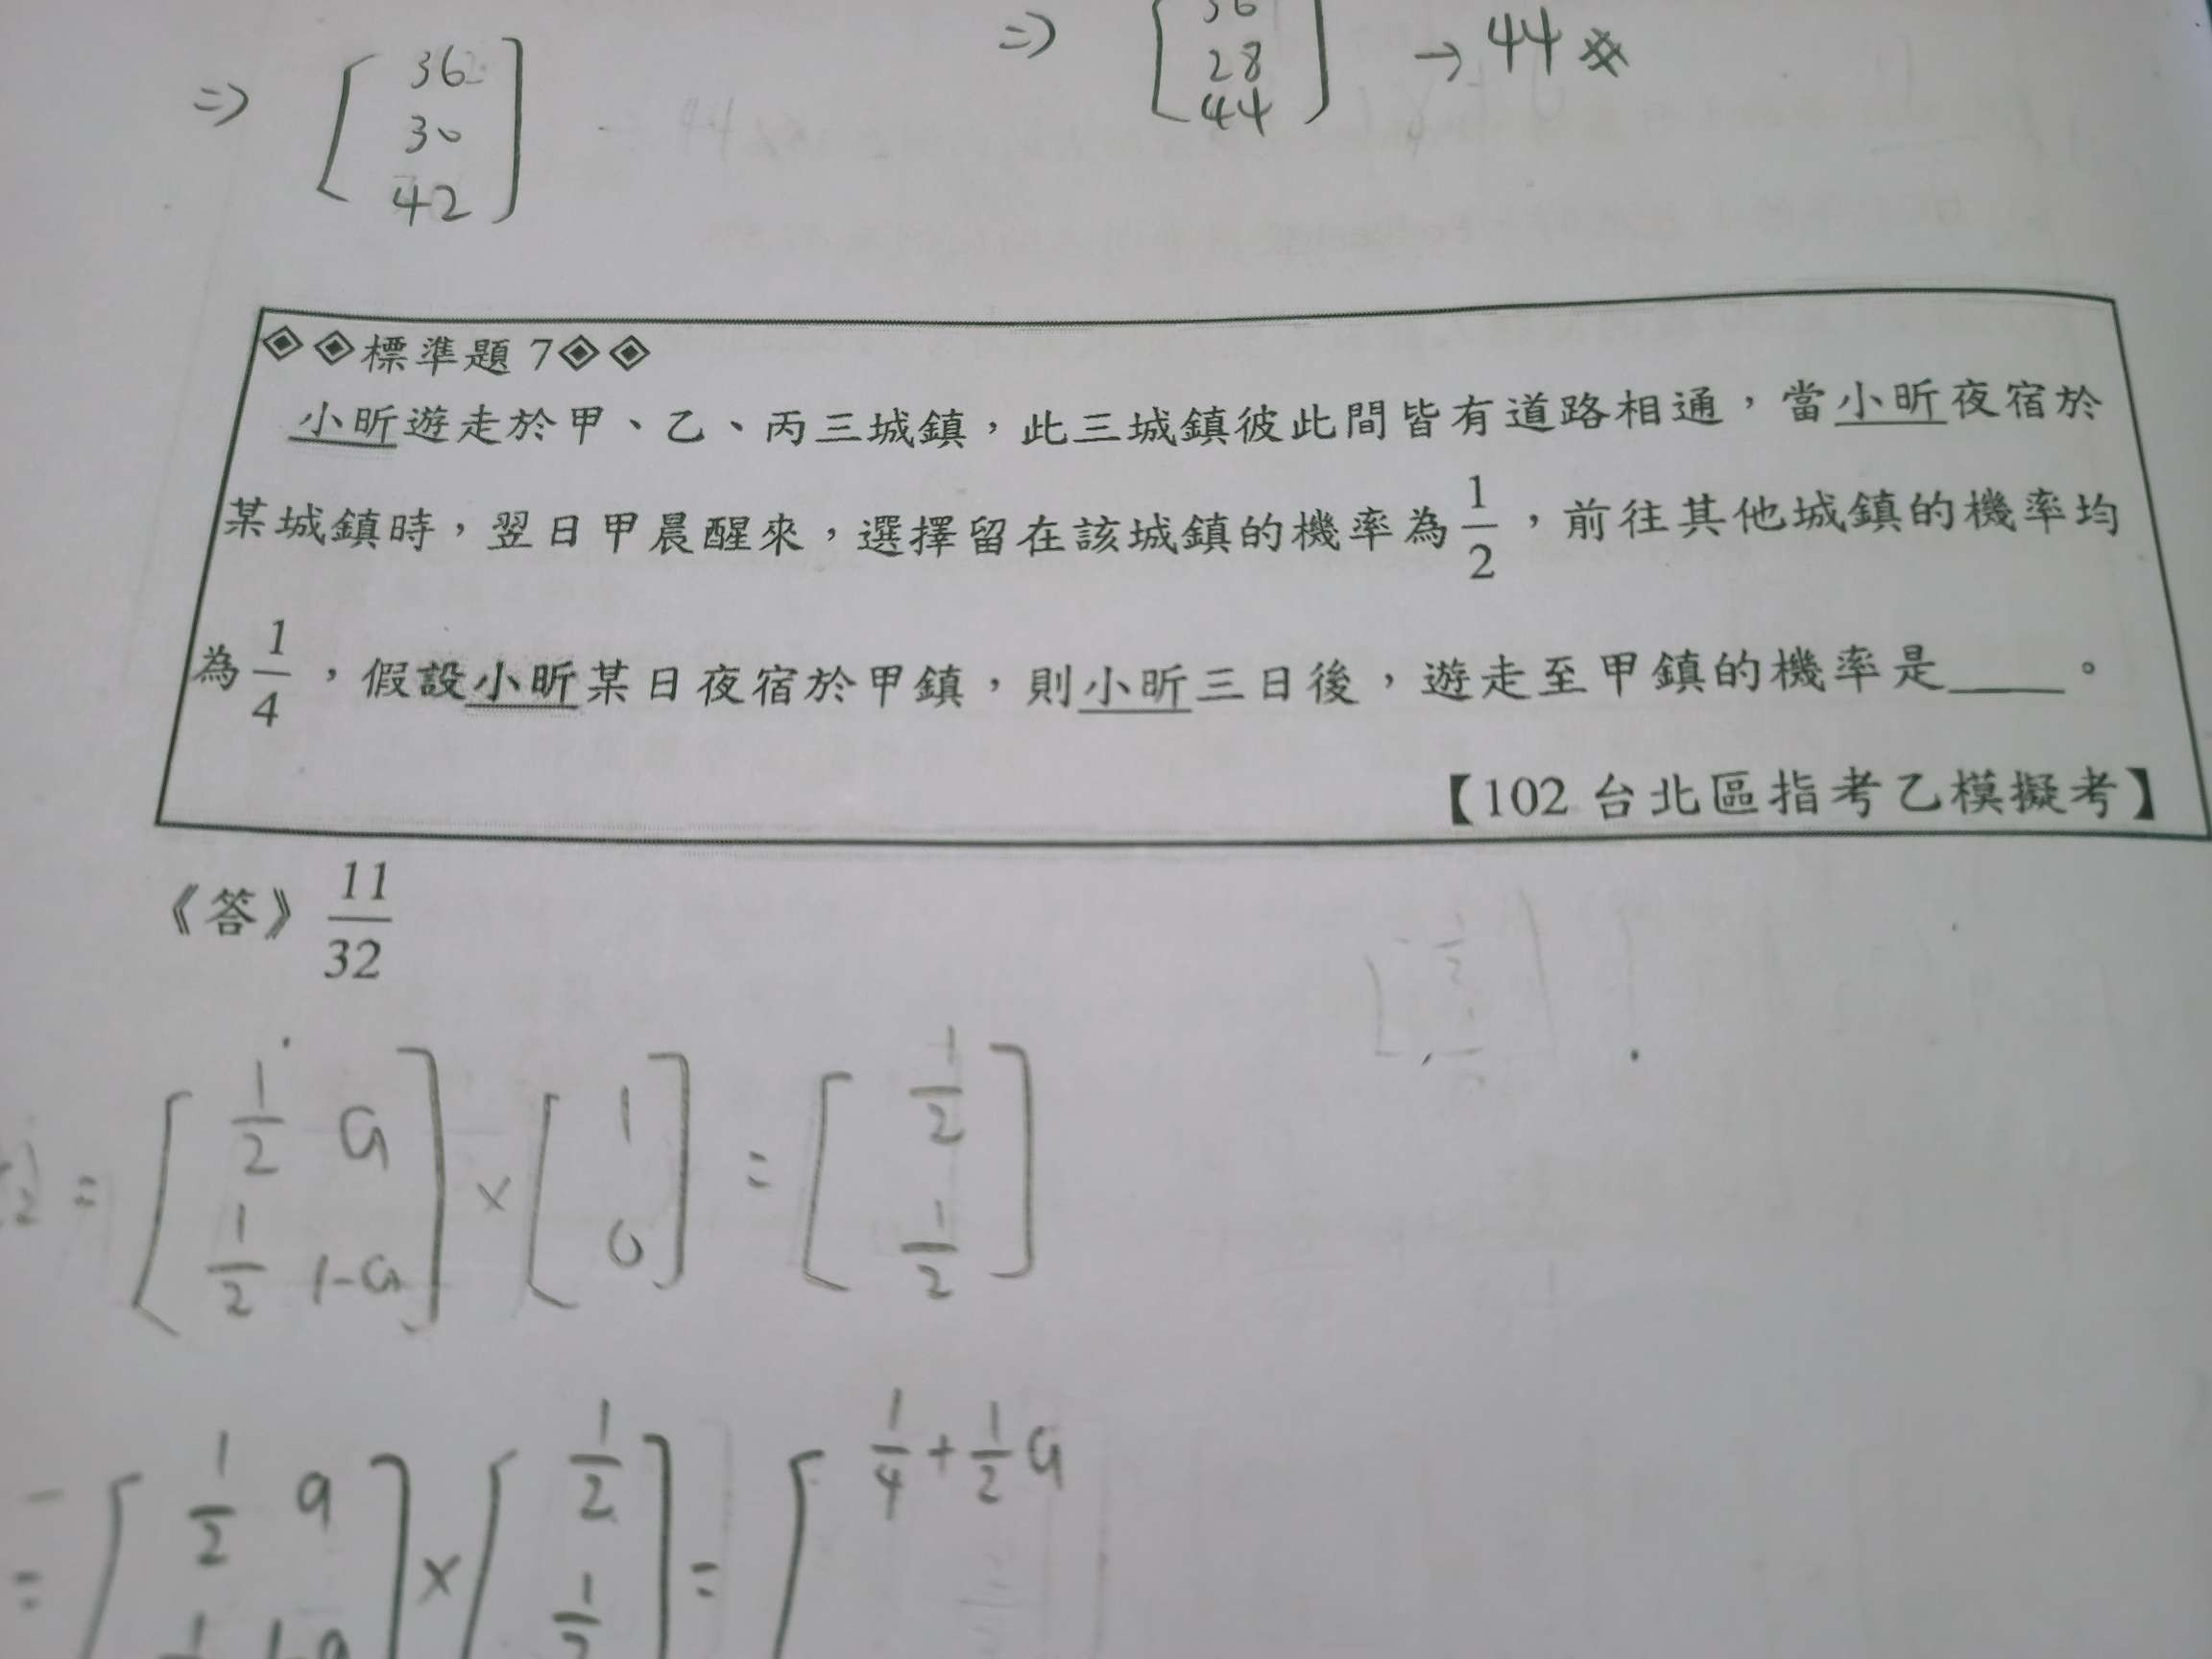 ⇒ [36 30 42]
⇒ [36 28 44] → 44 #
◈◈標準題 7◈◈
小昕遊走於甲、乙、丙三城鎮，此三城鎮彼此間皆有道路相通，當小昕夜宿於
某城鎮時，翌日甲晨醒來，選擇留在該城鎮的機率為 1/2，前往其他城鎮的機率均
為 1/4，假設小昕某日夜宿於甲鎮，則小昕三日後，遊走至甲鎮的機率是____。
【102 台北區指考乙模擬考】
《答》 11/32
= [1/2 a; 1/2 1-a] × [1; 0] = [1/2; 1/2]
= [1/2 a; 1-a] × [1/2; 1/2] = [1/4 + 1/2 a